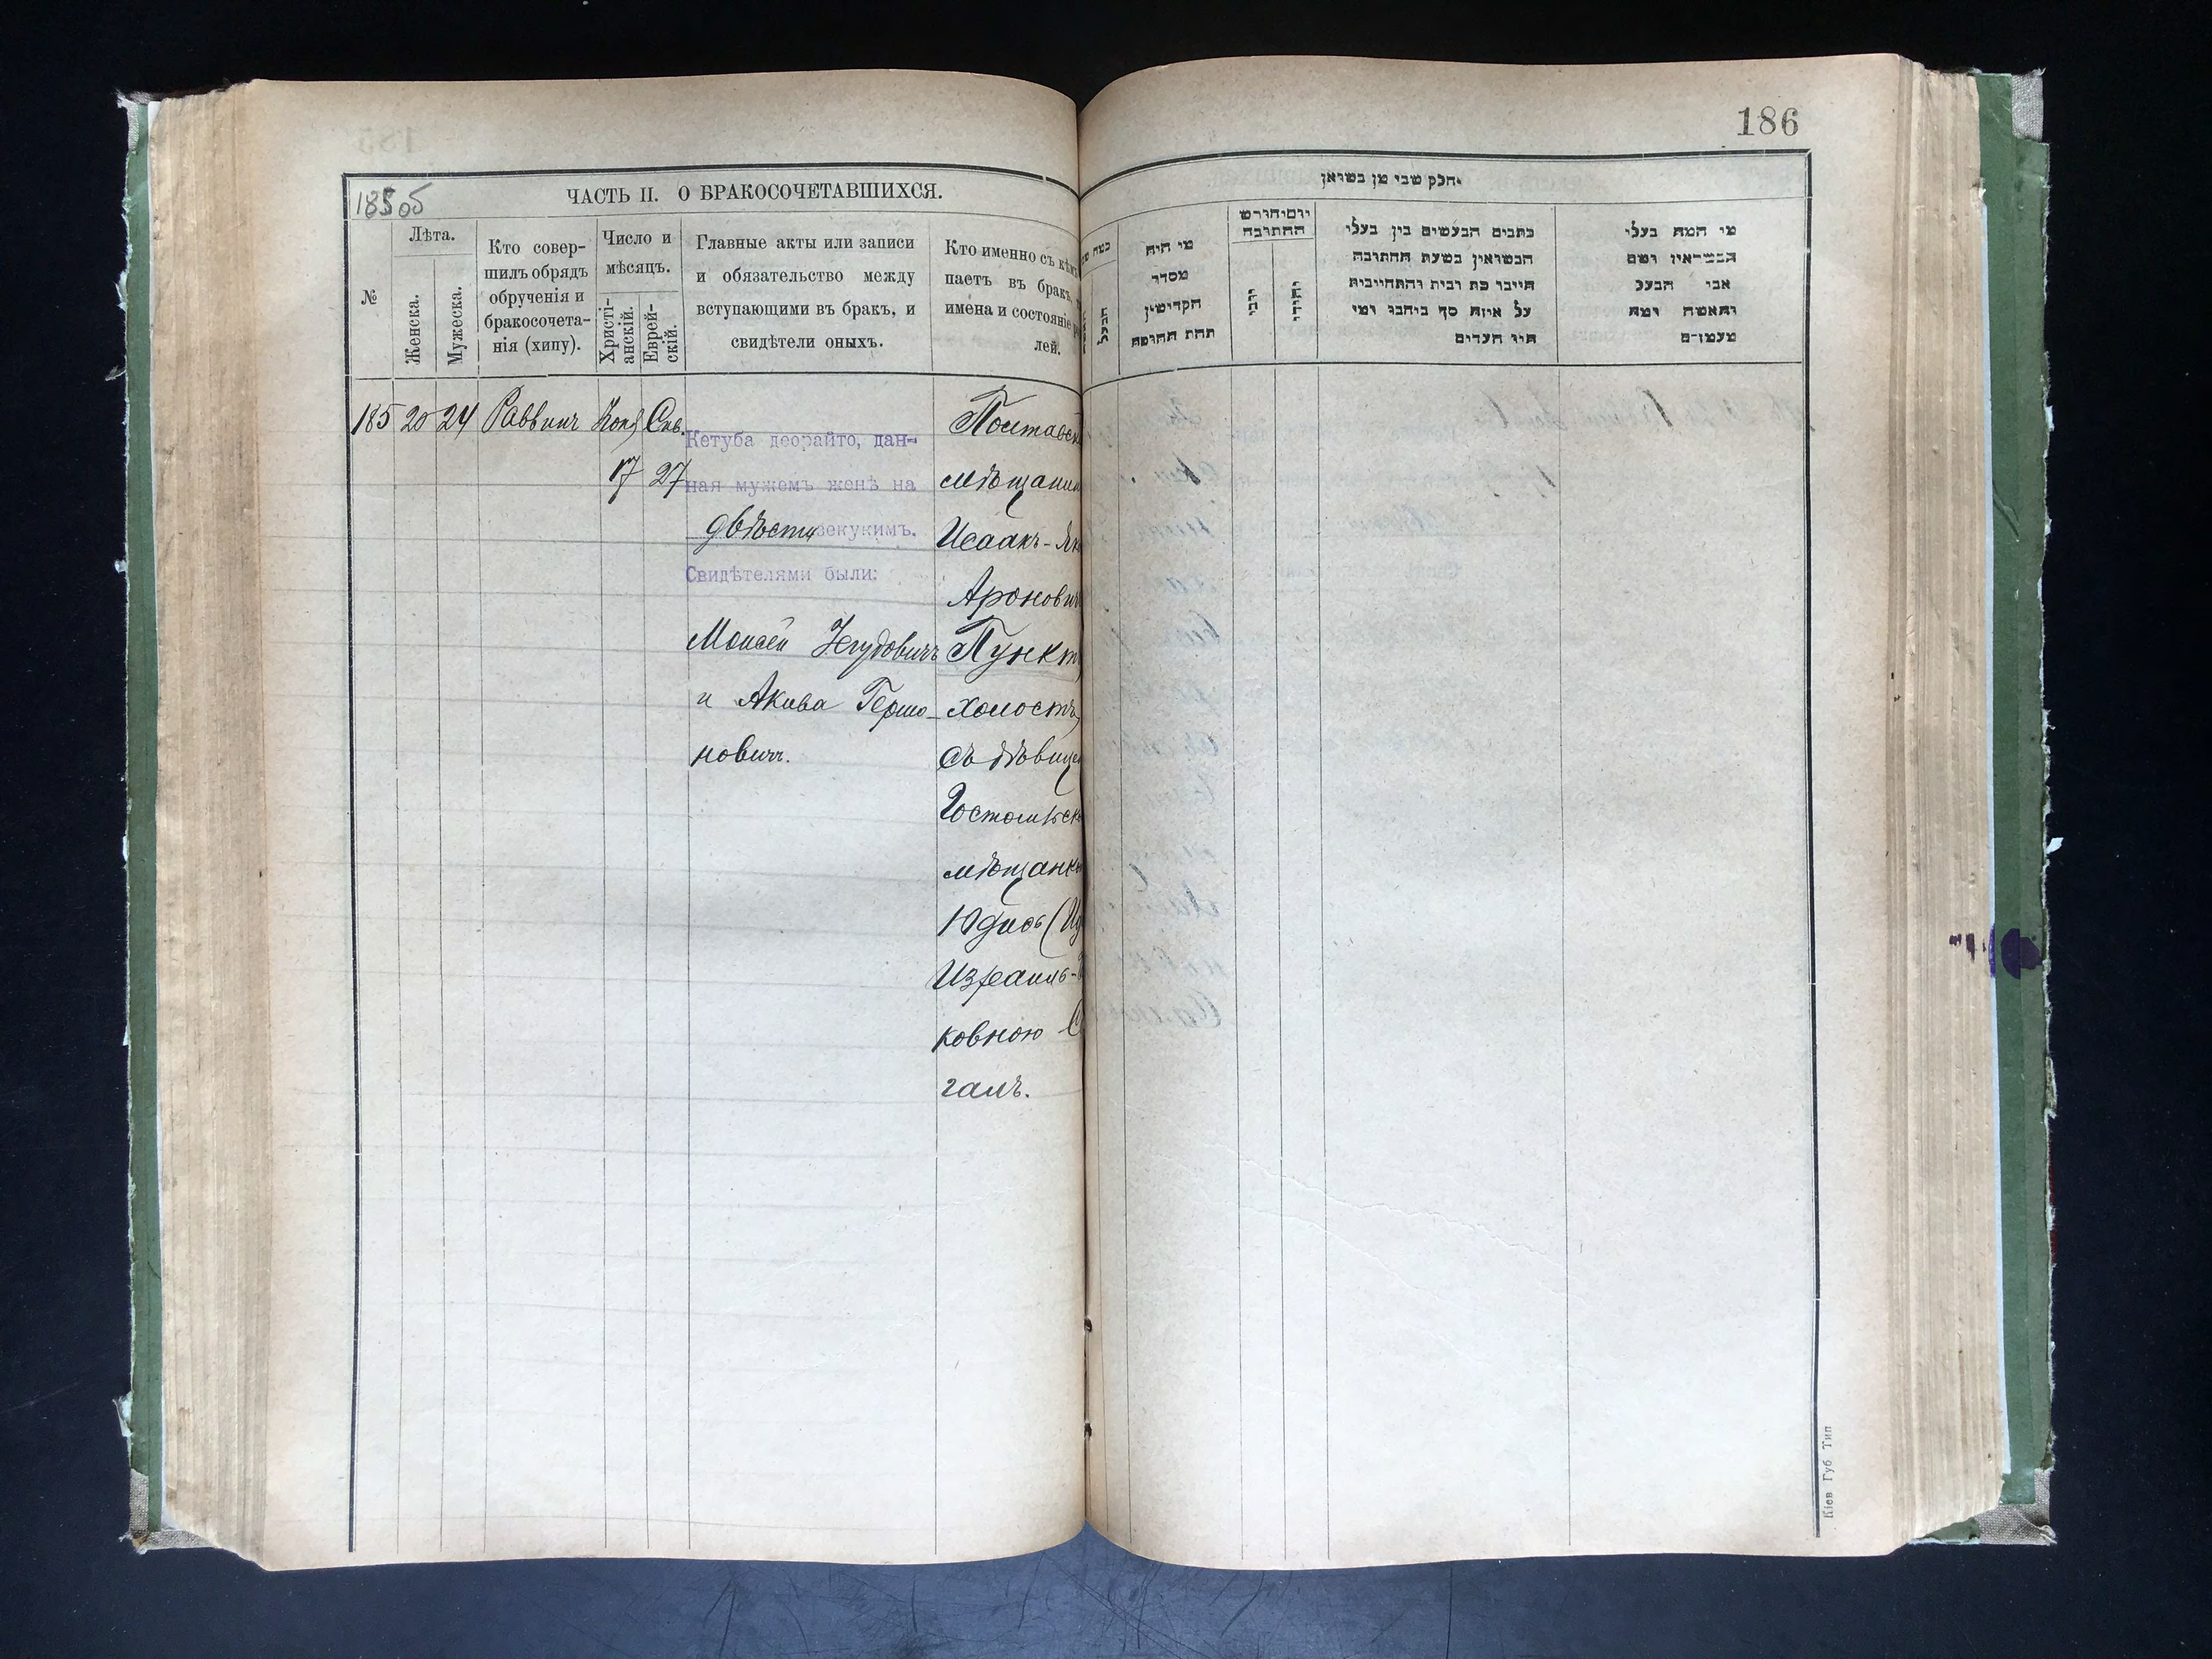 186
185об
ЧАСТЬ II. О БРАКОСОЧЕТАВШИХСЯ.
№
Лѣта.
Женска.
Мужеска.
Кто совер-
шилъ обрядъ
обрученія и
бракосочета-
нія (хипу).
Число и
мѣсяцъ.
Христі-
анскій.
Еврей-
скій.
Главные акты или записи
и обязательство между
вступающими въ бракъ, и
свидѣтели оныхъ.
Кто именно съ кѣмъ
паетъ въ бракъ,
имена и состояніе
лей.
185 20 24 Раввинъ Нояб Сив.
17 27
Кетуба деорайто, дан-
ная мужемъ женѣ на
двѣсти зекукимъ.
Свидѣтелями были:
Моисей
и Акива Гершо-
новичъ.
Полтавск
мѣщанин
Исаакъ-Як
Аронович
Пунктъ
холостъ,
съ дѣвицею
Гостомѣльск
мѣщанк
Юдись (Ид
Израиль-
ковною С
галъ.
חלק שני מן נשואן
הבעל
מי היה
מסדר
הקדישין
תחת החופה
יום וחודש
החתובה
יהודי
כתבים הנעשים בין בעלי
הנשואין בשעת החתובה
חייבו כת ובית והתחייבות
על איזה סך ביחבו ומי
היו העדים
מי המה בעלי
הנשואין ושם
אבי הבעל
והאשה ומה
מעמדם
Кіев Губ Тип